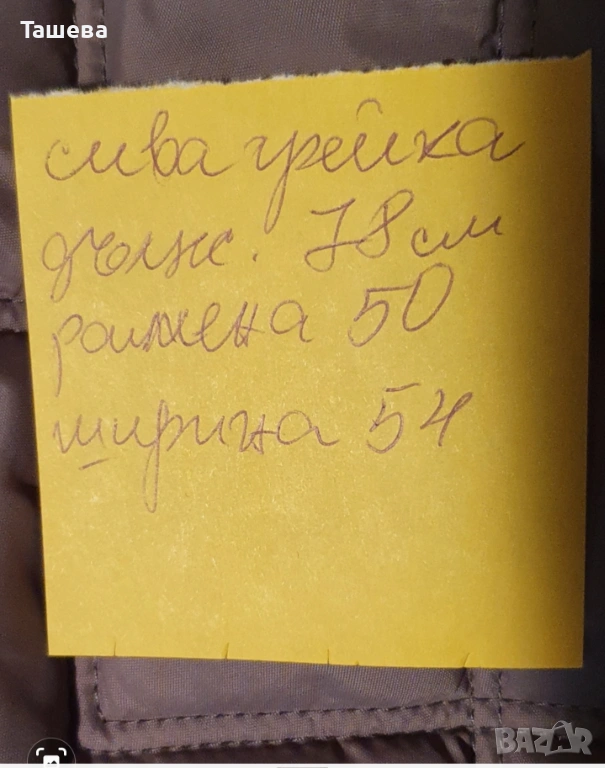 Ташева
сива грейка
дълж. 78 см
рамена 50
ширина 54
BAZAR